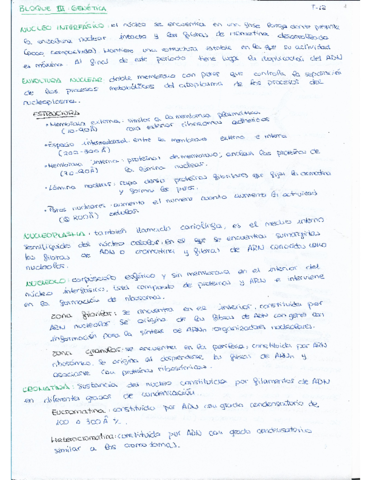 BLOQUE III - GENÉTICA T-12
NÚCLEO INTERFÁSICO: el núcleo se encuentra en una fase
la envoltura nuclear intacta y las fibras de cromatina
mantiene una estructura estable en la que su actividad
es máxima. Al final de este periodo tiene lugar la duplicación del ADN
ENVOLTURA NUCLEAR: doble membrana con poros que controla la separación
de los procesos metabólicos del citoplasma de los procesos del
nucleoplasma.
ESTRUCTURA
• Membrana externa: similar a la membrana plasmática
ribosomas adheridos
• Espacio intermembranal: entre la membrana externa e interna
(200-300 Å)
• Membrana interna: proteínas de membrana, anclan las proteínas de
la lámina nuclear.
• Lámina nuclear: capa densa proteínas fibrilares que fijan la cromatina
y forman los poros.
• Poros nucleares: aumenta el número cuanto aumenta la actividad
celular
NUCLEOPLASMA: también llamado carioplasma, es el medio interno
semilíquido del núcleo celular, en el que se encuentran sumergidas
las fibras de ADN o cromatina y fibras de ARN conocidas como
nucléolos.
NUCLÉOLO: corpúsculo esférico y sin membrana en el interior del
núcleo interfásico. Está compuesto de proteínas y ARN e interviene
en la formación de ribosomas.
Zona fibrilar: se encuentra en el interior, constituida por
ARN nucleolar. Se origina de las fibras de ADN con genes con
información para la síntesis de ARNn (organizadores nucleolares).
Zona granular: se encuentra en la periferia, constituida por ARN
ribosómico. Se origina al desprenderse las fibras de ARNn y
asociarse con proteínas ribosómicas.
CROMATINA: Sustancia del núcleo constituida por filamentos de ADN
en diferentes grados de condensación.
Eucromatina: constituida por ADN con grado condensatorio de,
100 a 300 Å.
Heterocromatina: constituida por ADN con grado condensatorio
similar a los cromosomas.